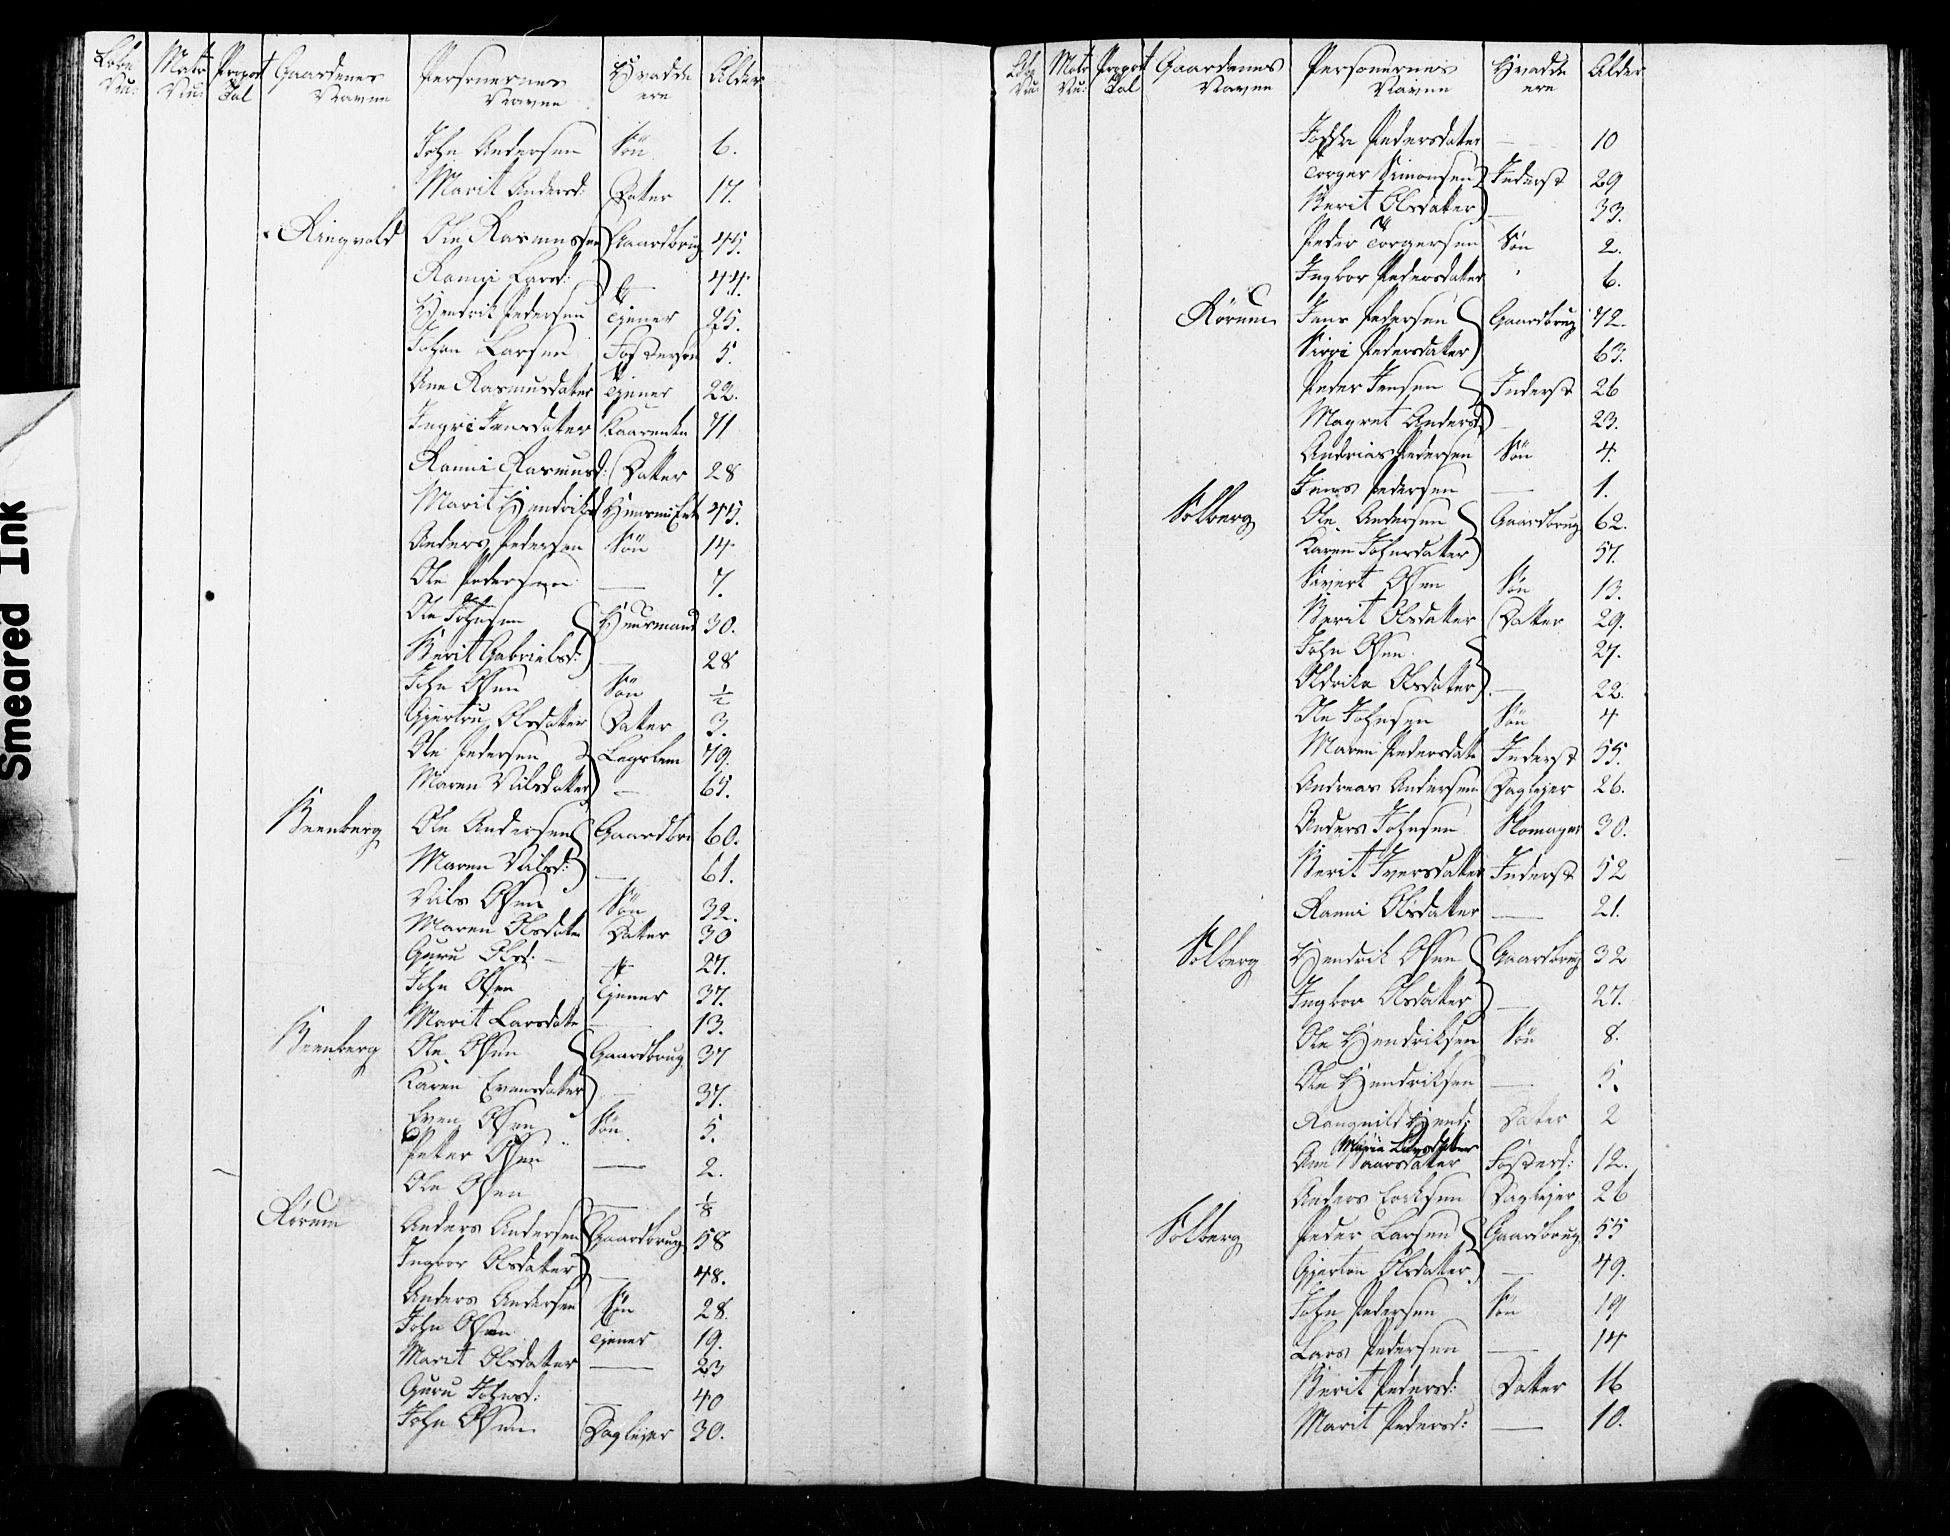 Smeared Ink
Løbe Nu: Matr Nu: Proport Tal Gaardenes Navne Personernes Navne Hvadde ere Alder
John Andersen Søn 6.
Marit Andersd: Datter 17.
Ringvold Ole Rasmussen Gaardbrug 45.
Ranni Larsd: — 44.
Hendrik Pedersen Tjener 25.
Johan Larsen Fostersøn 5.
Ane Rasmusdater Tjener 22.
Ingri Jensdater Kaarenke 71
Ranni Rasmusd: Datter 28
Marit Hendriksd 45.
Anders Pedersen Søn 14
Ole Pedersen — 7.
Ole Johnsen Huusmand 30.
Berit Gabrielsd: — 28
John Olsen Søn ½
Gjertru Olsdatter Datter 3.
Ole Pedersen Legslem 79.
Maren Nilsdatter — 65.
Reenberg Ole Andersen Gaardbru 60.
Maren Nilsd: — 61.
Nils Olsen Søn 32.
Maren Olsdater Datter 30
Guru Olsd: — 27.
John Olsen Tjener 37.
Marit Larsdate — 13.
Reenberg Ole Olsen Gaardbrug 37
Karen Evensdater — 37.
Even Olsen Søn 5.
Petter Olsen — 2.
Ole Olsen — ⅛
Rørum Anders Andersen Gaardbrug 58
Ingbor Olsdatter — 48.
Anders Andersen Søn 28.
John Olsen Tjener 19.
Marit Olsdatter — 23
Guru Johnsd: — 40
John Olsen Daglejer 30.
Løbe Nu: Matr Nu: Proport Tal Gaardenes Navne Personernes Navne Hvadde ere Alder
Pedersdater — 10
Torger Simonsen Inderst 29
Berit Olsdatter — 33.
Peder Torgersen Søn 2.
Ingbor Pedersdater 6.
Rørum Jens Pedersen Gaardbrug 72.
Sirri Pedersdater 63.
Peder Jensen Inderst 26
Magret Andersd — 23.
Andrias Pedersen Søn 4.
Jens Pedersen — 1.
Solberg Ole Andersen Gaardbrug 62.
Karen Johnsdater 57.
Sivert Olsen Søn 13.
Berit Olsdatter Datter 29.
John Olsen 27.
Oldrika Olsdatter — 22.
Ole Johnsen Søn 4
Maren Pedersdatte Inderst 55.
Andreas Andersen Daglejer 26.
Anders Johnsen Skomager 30.
Berit Iversdatter Inderst 52
Ranni Olsdatter — 21.
Solberg Hendrik Olsen Gaardbrug 32
Ingbor Olsdatter — 27.
Ole Hendriksen Søn 8.
Ole Hendriksen — 5.
Rangnild Hend: Dater 2
Maria Larsdatter
Ane Fosterd: 12.
Anders Daglejer 26
Solberg Peder Larsen Gaardbrug 55
Olsdatter — 49.
John Pedersen Søn 19
Lars Pedersen — 14
Berit Pedersd: Datter 16
Marit Pedersd: — 10.